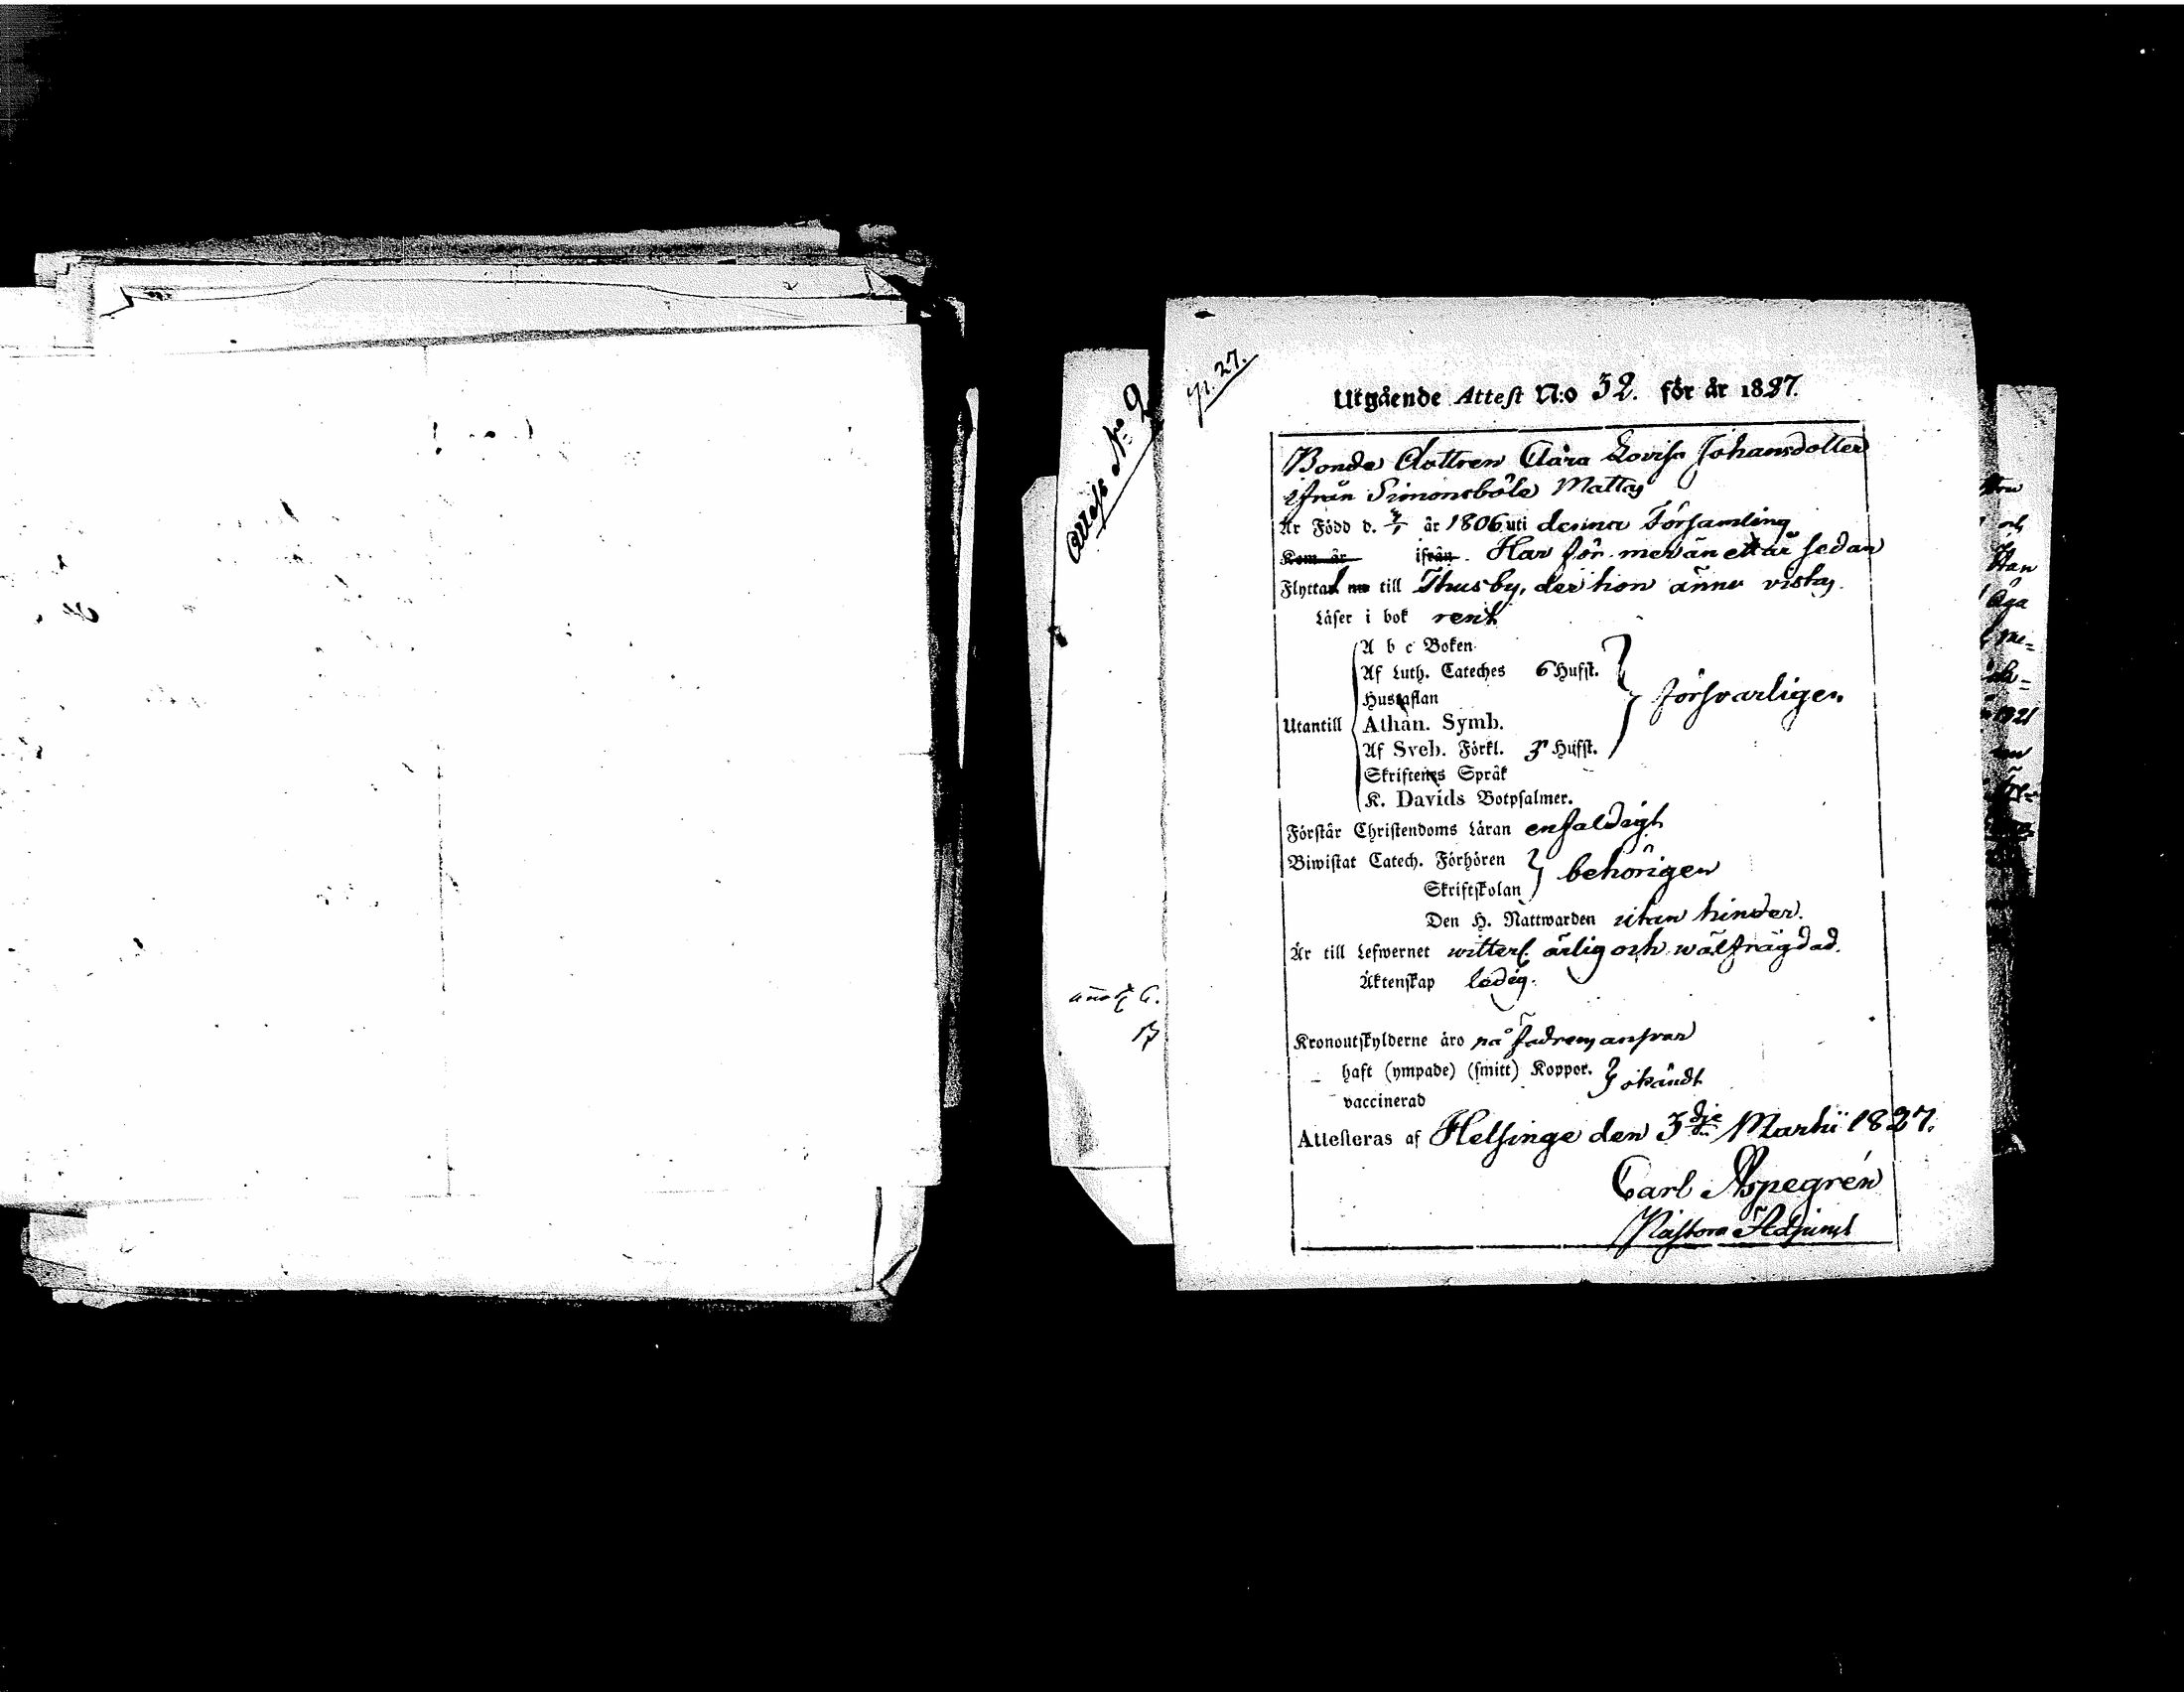 Attest No 2
p. 27.
Utgående Attest N:o 32. för år 1827.
Bonde Dottren Clara Lovisa Johansdotter
ifrån Simonsböle Mattas
Är Född d. år 1806 uti denna Församling
Kom år ifrån. Har för mer än ett år sedan
Flyttat nu till Thusby, der hon ännu vistas.
Läser i bok rent
A b c Boken
Af Luth. Cateches 6 Hufst.
Hustaflan
Utantill Athan. Symb. försvarligen
Af Sveb. Förkl. 3 Hufst.
Skriftenes Språk
K. Davids Botpsalmer.
Förstår Christendoms Läran enfaldigt
Biwistat Catech. Förhören behörigen
Skriftskolan
Den H. Nattwarden utan hinder.
Är till Lefwernet witterl. ärlig och wälfrägdad.
Äktenskap ledig.
Kronoutskylderne äro på Fadrens ansvar
haft (ympade) (smitt) Koppor. okändt
vaccinerad
Attesteras af Helsinge den 3dje Martii 1827.
Carl Aspegrén
Pastors Adjunct